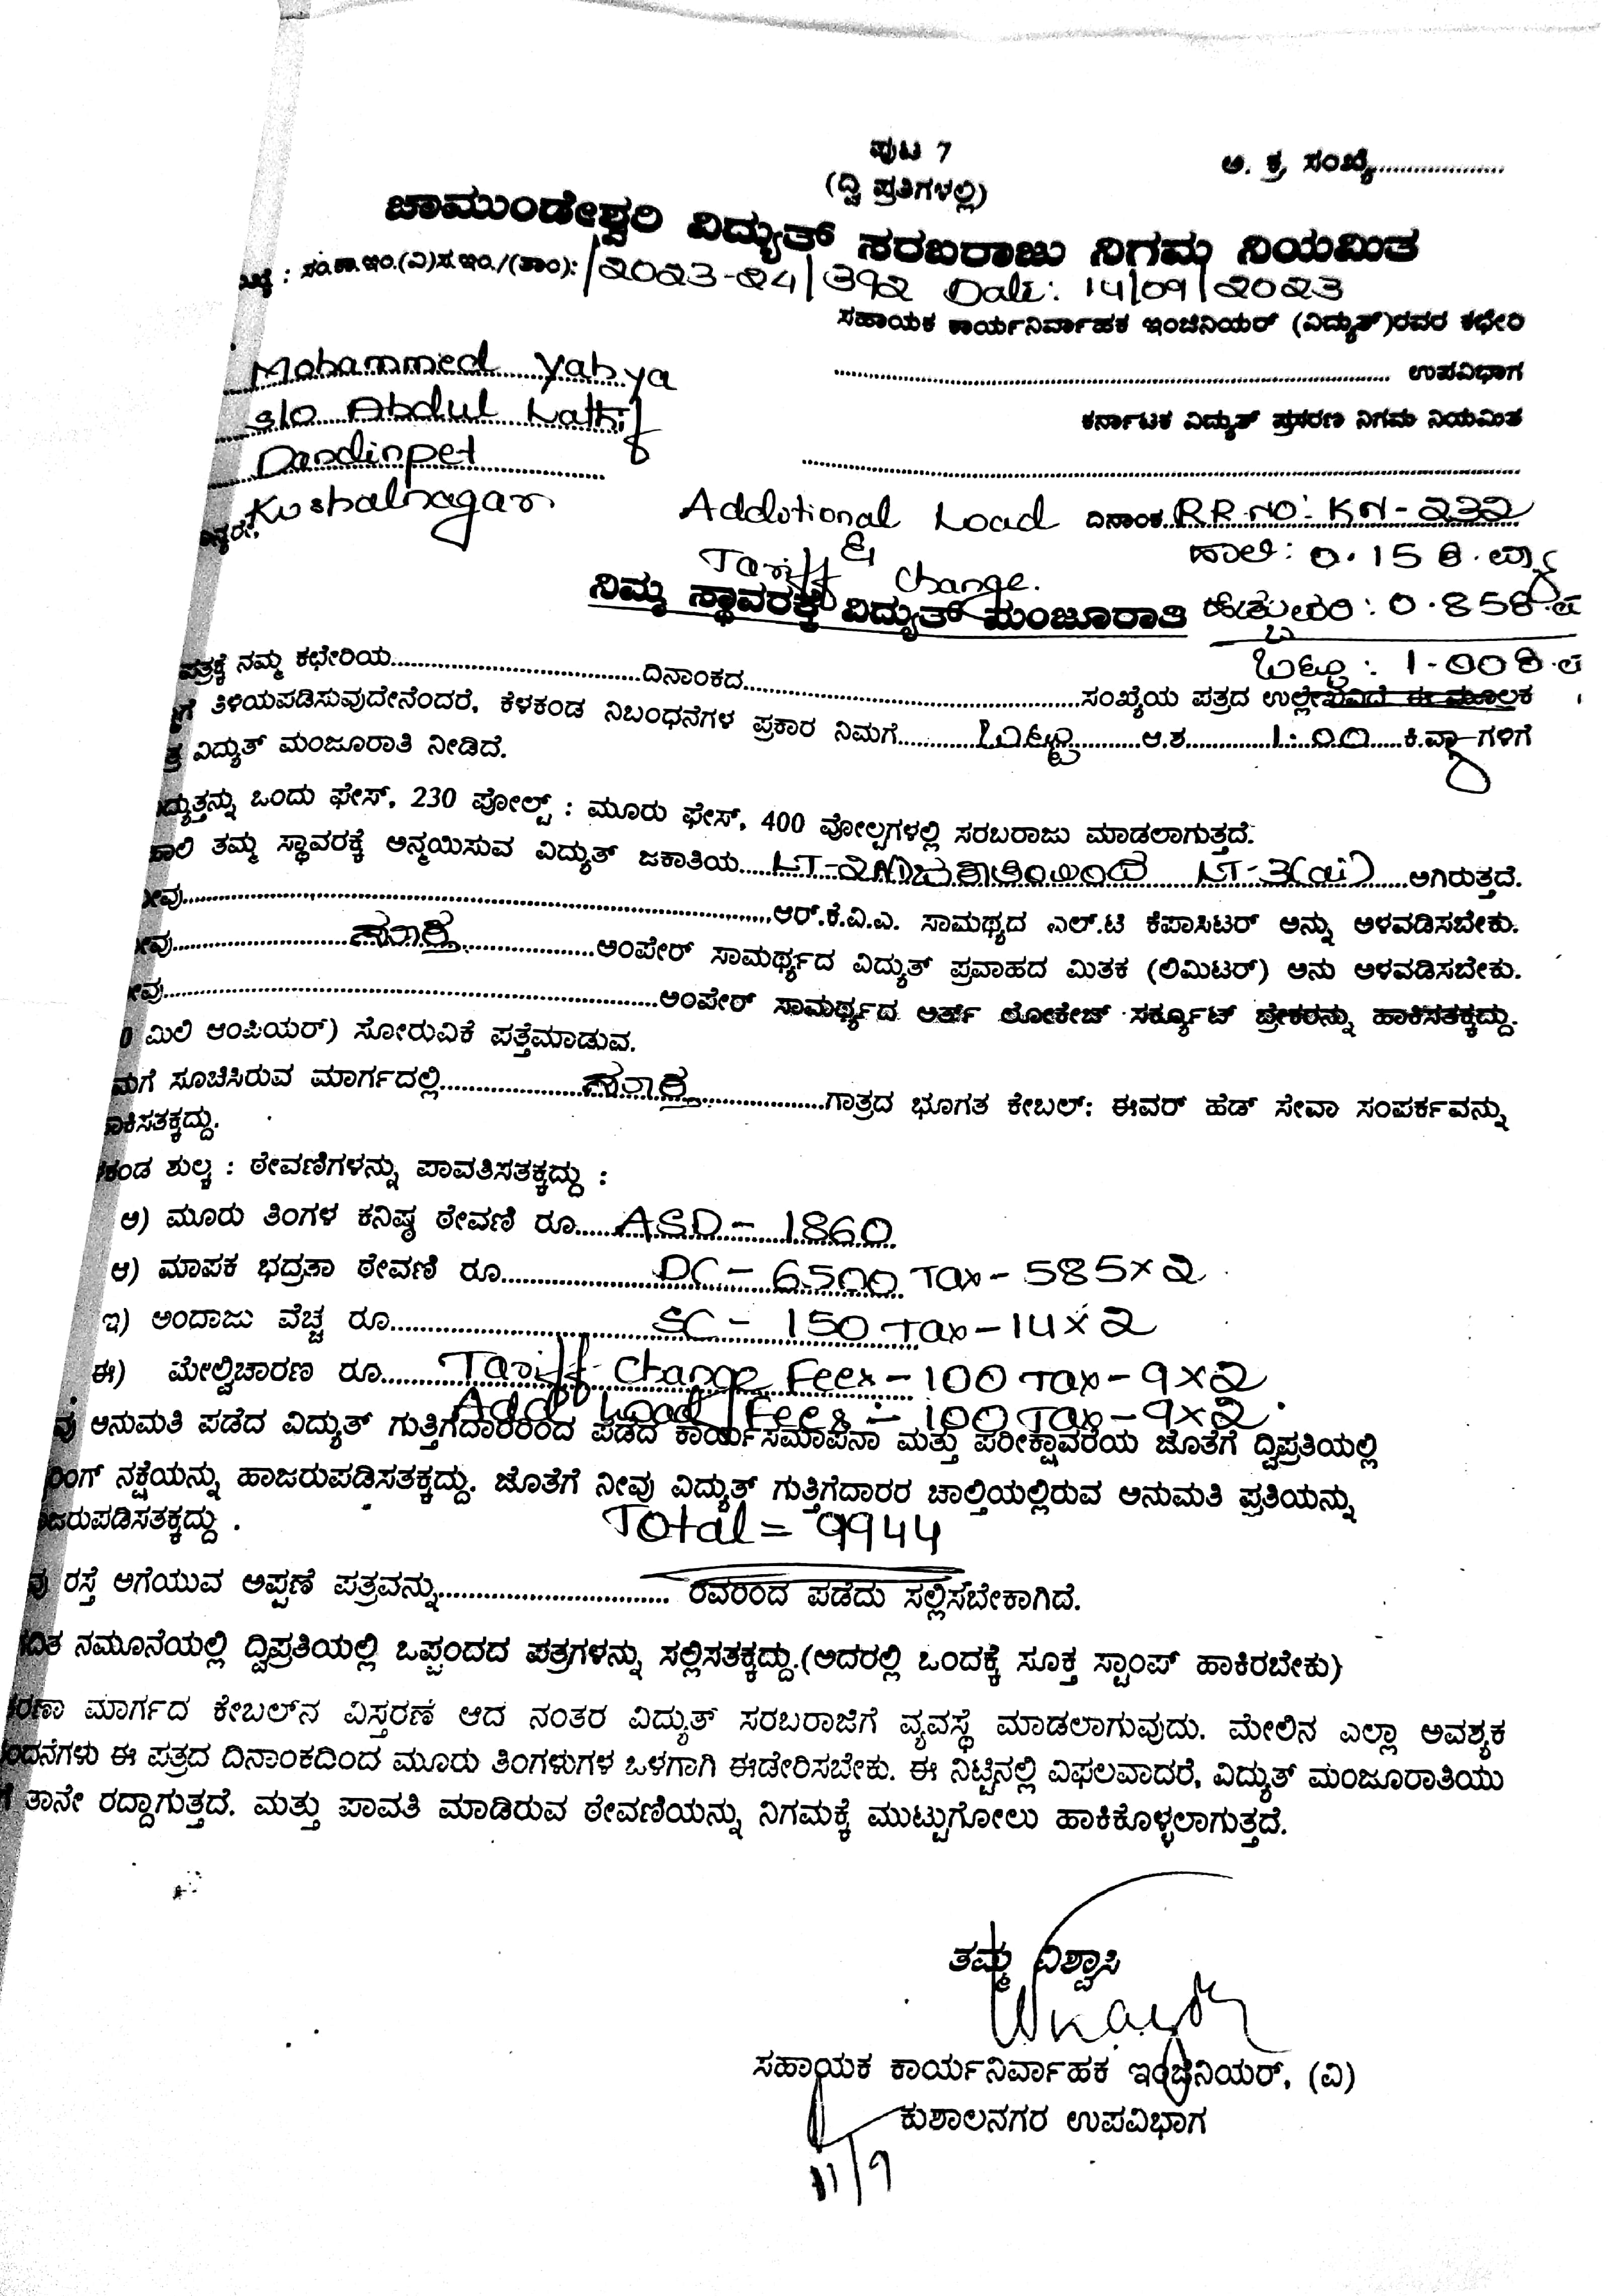 ಪುಟ 7
ಅ. ಕ್ರ. ಸಂಖ್ಯೆ....................
(ದ್ವಿ ಪ್ರತಿಗಳಲ್ಲಿ)
ಚಾಮುಂಡೇಶ್ವರಿ ವಿದ್ಯುತ್ ಸರಬರಾಜು ನಿಗಮ ನಿಯಮಿತ
: ಸಂ.ಕಾ.ಇಂ.(ವಿ)ಸ.ಇಂ./(ತಾಂ): /2023-24/392 Date: 14/09/2023
ಸಹಾಯಕ ಕಾರ್ಯನಿರ್ವಾಹಕ ಇಂಜಿನಿಯರ್ (ವಿದ್ಯುತ್)ರವರ ಕಛೇರಿ
Mohammed Yahya
.................... ಉಪವಿಭಾಗ
S/O Abdul Lathif
ಕರ್ನಾಟಕ ವಿದ್ಯುತ್ ಪ್ರಸರಣ ನಿಗಮ ನಿಯಮಿತ
Dandinpet
Kushalnagar
Additional Load ದಿನಾಂಕ RR NO: KN-232
& Tariff Change.
ಹಾಲಿ: 0.15 ಕಿ.ವ್ಯಾ
ನಿಮ್ಮ ಸ್ಥಾವರಕ್ಕೆ ವಿದ್ಯುತ್ ಮಂಜೂರಾತಿ
ಹೆಚ್ಚುವರಿ: 0.85 ಕಿ.ವ
ಒಟ್ಟು: 1.00 ಕಿ.ವ
ಪತ್ರಕ್ಕೆ ನಮ್ಮ ಕಛೇರಿಯ....................ದಿನಾಂಕದ....................ಸಂಖ್ಯೆಯ ಪತ್ರದ ಉಲ್ಲೇಖವಿದೆ ಈ ಮೂಲಕ
ಗೆ ತಿಳಿಯಪಡಿಸುವುದೇನೆಂದರೆ, ಕೆಳಕಂಡ ನಿಬಂಧನೆಗಳ ಪ್ರಕಾರ ನಿಮಗೆ....ಒಟ್ಟು....ಆ.ಶ....1.00....ಕಿ.ವ್ಯಾಗಳಿಗೆ
ತ್ರ ವಿದ್ಯುತ್ ಮಂಜೂರಾತಿ ನೀಡಿದೆ.
ದ್ಯುತ್ತನ್ನು ಒಂದು ಫೇಸ್, 230 ವೋಲ್ಟ್ : ಮೂರು ಫೇಸ್, 400 ವೋಲ್ಟಗಳಲ್ಲಿ ಸರಬರಾಜು ಮಾಡಲಾಗುತ್ತದೆ.
ಹಾಲಿ ತಮ್ಮ ಸ್ಥಾವರಕ್ಕೆ ಅನ್ವಯಿಸುವ ವಿದ್ಯುತ್ ಜಕಾತಿಯ.... LT-3(ai) ....ಆಗಿರುತ್ತದೆ.
ೀವು....................ಆರ್.ಕೆ.ವಿ.ಎ. ಸಾಮಥ್ಯದ ಎಲ್.ಟಿ ಕೆಪಾಸಿಟರ್ ಅನ್ನು ಅಳವಡಿಸಬೇಕು.
ೀವು....................ಅಂಪೇರ್ ಸಾಮರ್ಥ್ಯದ ವಿದ್ಯುತ್ ಪ್ರವಾಹದ ಮಿತಕ (ಲಿಮಿಟರ್) ಅನು ಅಳವಡಿಸಬೇಕು.
ೀವು....................ಅಂಪೇರ್ ಸಾಮರ್ಥ್ಯದ ಅರ್ತ್ ಲೋಕೇಜ್ ಸರ್ಕ್ಯೂಟ್ ಬ್ರೇಕರನ್ನು ಹಾಕಿಸತಕ್ಕದ್ದು.
0 ಮಿಲಿ ಆಂಪಿಯರ್) ಸೋರುವಿಕೆ ಪತ್ತೆಮಾಡುವ.
ಮಗೆ ಸೂಚಿಸಿರುವ ಮಾರ್ಗದಲ್ಲಿ....................ಗಾತ್ರದ ಭೂಗತ ಕೇಬಲ್: ಈವರ್ ಹೆಡ್ ಸೇವಾ ಸಂಪರ್ಕವನ್ನು
ಾಕಿಸತಕ್ಕದ್ದು.
ಕಂಡ ಶುಲ್ಕ : ಠೇವಣಿಗಳನ್ನು ಪಾವತಿಸತಕ್ಕದ್ದು :
ಅ) ಮೂರು ತಿಂಗಳ ಕನಿಷ್ಠ ಠೇವಣಿ ರೂ.....ASD - 1860
ಆ) ಮಾಪಕ ಭದ್ರತಾ ಠೇವಣಿ ರೂ.......... DC - 6500 Tax - 585×2
ಇ) ಅಂದಾಜು ವೆಚ್ಚ ರೂ.......... SC - 150 Tax - 14×2
ಈ) ಮೇಲ್ವಿಚಾರಣ ರೂ.......Tariff Change Fees - 100 Tax - 9×2
Addl Load Fees - 100 Tax - 9×2.
ವು ಅನುಮತಿ ಪಡೆದ ವಿದ್ಯುತ್ ಗುತ್ತಿಗೆದಾರರಿಂದ ಪಡೆದ ಕಾರ್ಯಸಮಾಪನಾ ಮತ್ತು ಪರೀಕ್ಷಾವರೆಯ ಜೊತೆಗೆ ದ್ವಿಪ್ರತಿಯಲ್ಲಿ
ರಿಂಗ್ ನಕ್ಷೆಯನ್ನು ಹಾಜರುಪಡಿಸತಕ್ಕದ್ದು. ಜೊತೆಗೆ ನೀವು ವಿದ್ಯುತ್ ಗುತ್ತಿಗೆದಾರರ ಚಾಲ್ತಿಯಲ್ಲಿರುವ ಅನುಮತಿ ಪ್ರತಿಯನ್ನು
ಜರುಪಡಿಸತಕ್ಕದ್ದು .
Total = 9944
ವು ರಸ್ತೆ ಅಗೆಯುವ ಅಪ್ಪಣೆ ಪತ್ರವನ್ನು.................... ರವರಿಂದ ಪಡೆದು ಸಲ್ಲಿಸಬೇಕಾಗಿದೆ.
ದಿತ ನಮೂನೆಯಲ್ಲಿ ದ್ವಿಪ್ರತಿಯಲ್ಲಿ ಒಪ್ಪಂದದ ಪತ್ರಗಳನ್ನು ಸಲ್ಲಿಸತಕ್ಕದ್ದು.(ಅದರಲ್ಲಿ ಒಂದಕ್ಕೆ ಸೂಕ್ತ ಸ್ಟಾಂಪ್ ಹಾಕಿರಬೇಕು)
ರಣಾ ಮಾರ್ಗದ ಕೇಬಲ್‌ನ ವಿಸ್ತರಣೆ ಆದ ನಂತರ ವಿದ್ಯುತ್ ಸರಬರಾಜಿಗೆ ವ್ಯವಸ್ಥೆ ಮಾಡಲಾಗುವುದು. ಮೇಲಿನ ಎಲ್ಲಾ ಅವಶ್ಯಕ
ಂದನೆಗಳು ಈ ಪತ್ರದ ದಿನಾಂಕದಿಂದ ಮೂರು ತಿಂಗಳುಗಳ ಒಳಗಾಗಿ ಈಡೇರಿಸಬೇಕು. ಈ ನಿಟ್ಟಿನಲ್ಲಿ ವಿಫಲವಾದರೆ, ವಿದ್ಯುತ್ ಮಂಜೂರಾತಿಯು
ತಾನೇ ರದ್ದಾಗುತ್ತದೆ. ಮತ್ತು ಪಾವತಿ ಮಾಡಿರುವ ಠೇವಣಿಯನ್ನು ನಿಗಮಕ್ಕೆ ಮುಟ್ಟುಗೋಲು ಹಾಕಿಕೊಳ್ಳಲಾಗುತ್ತದೆ.
ತಮ್ಮ ವಿಶ್ವಾಸಿ
ಸಹಾಯಕ ಕಾರ್ಯನಿರ್ವಾಹಕ ಇಂಜಿನಿಯರ್, (ವಿ)
ಕುಶಾಲನಗರ ಉಪವಿಭಾಗ
11/9